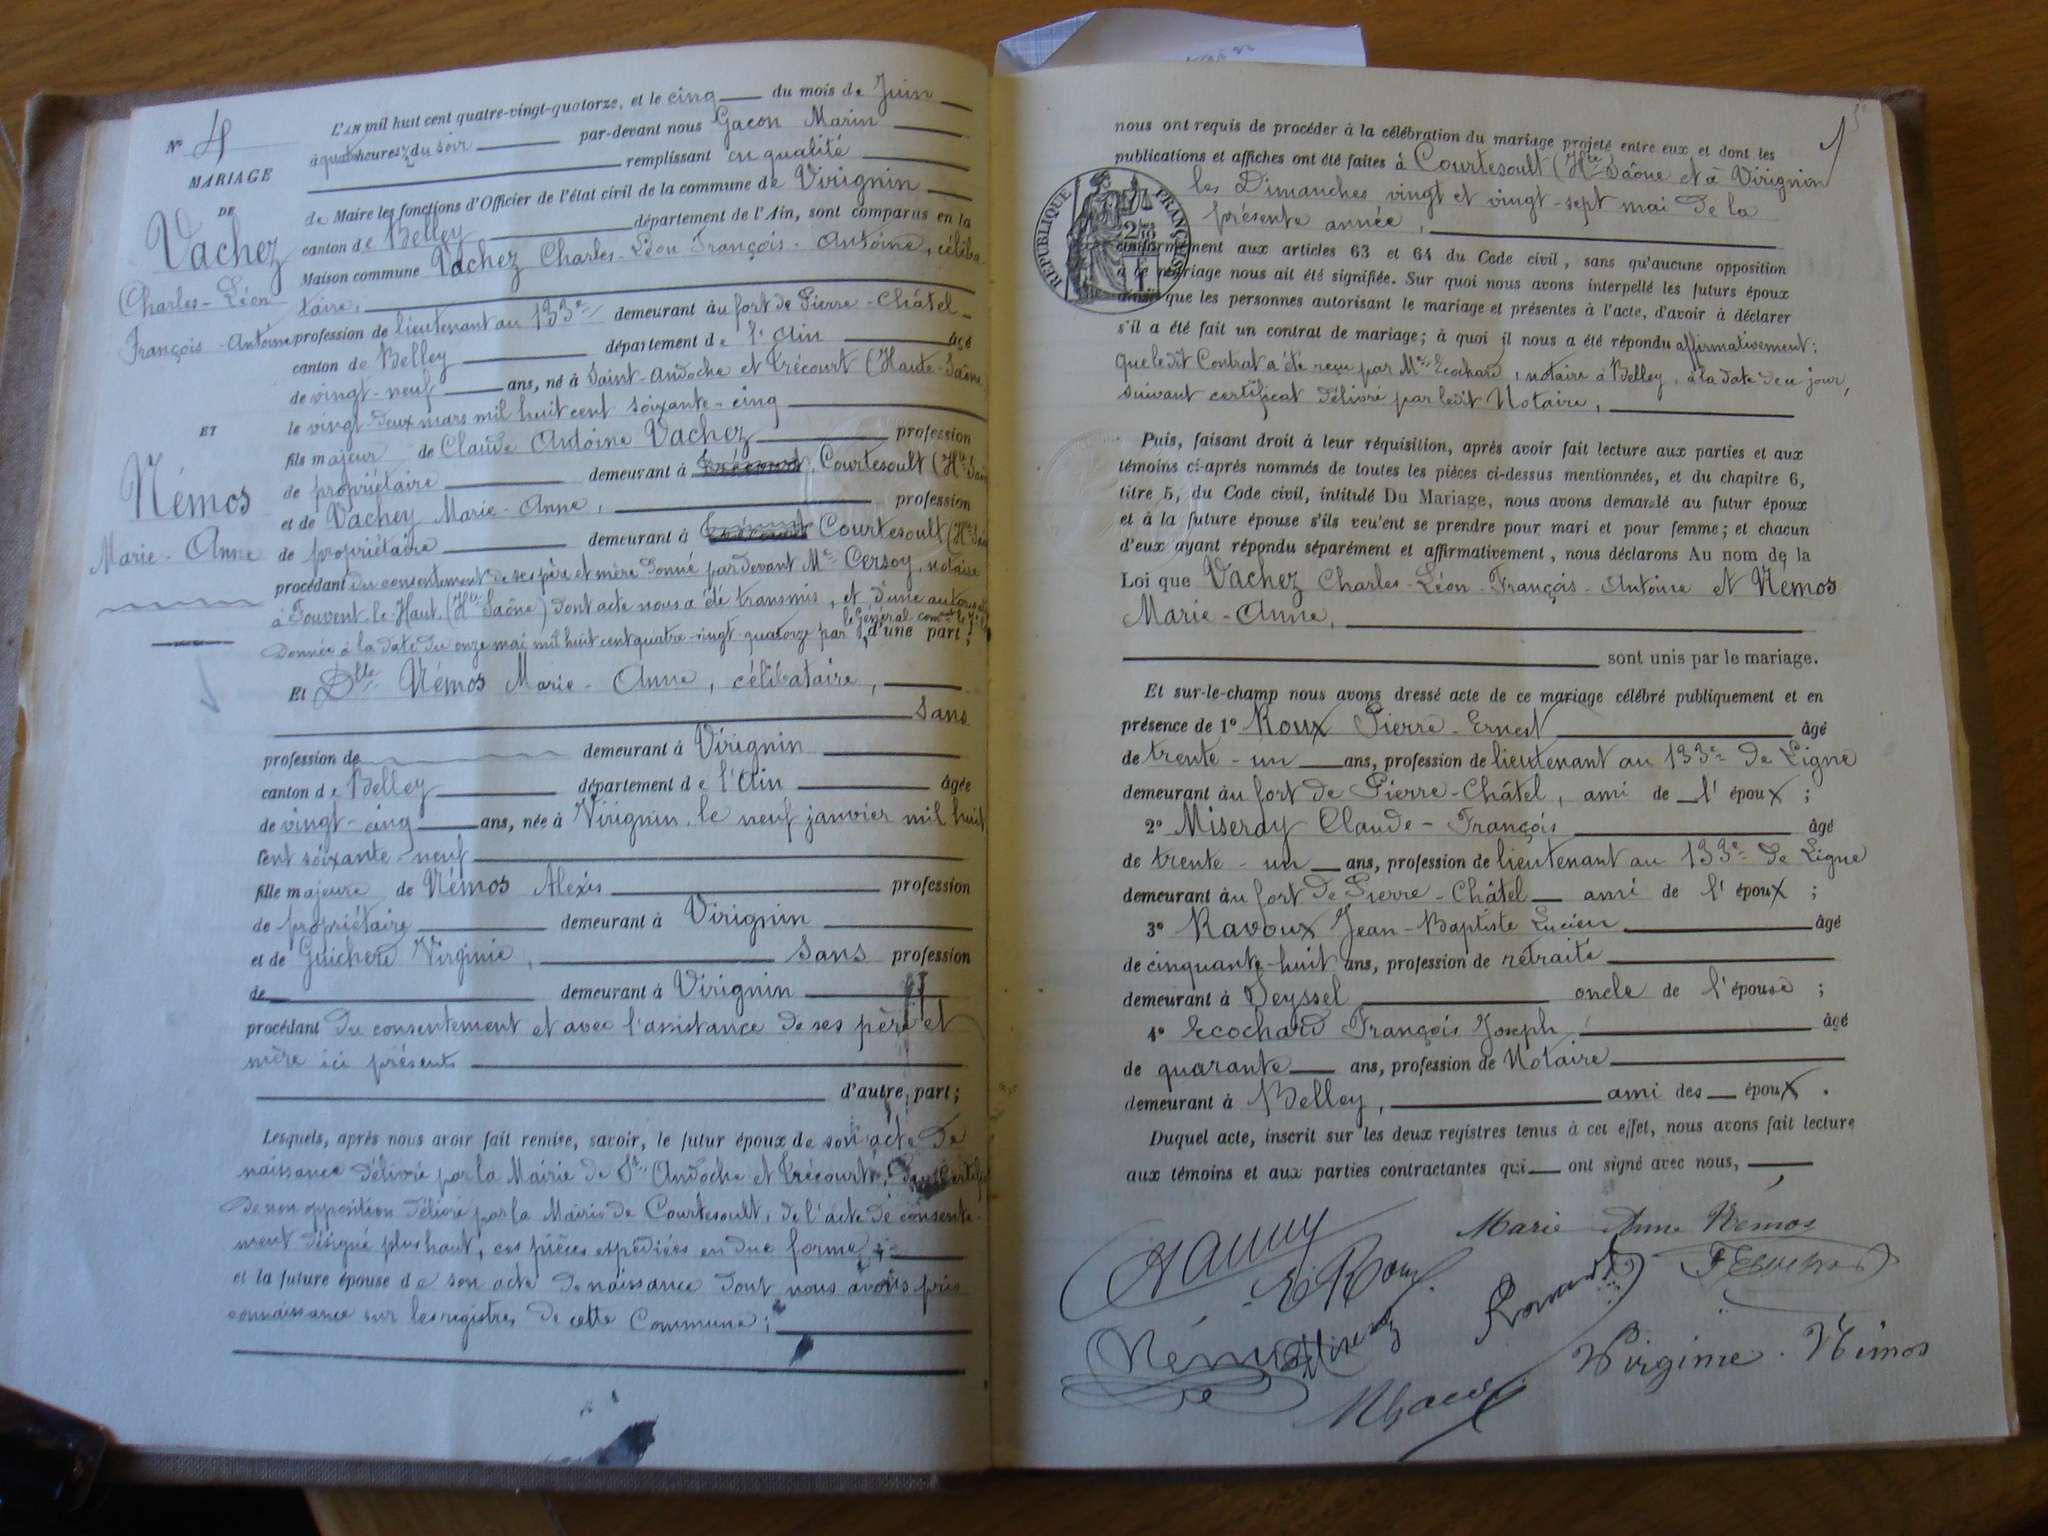 N° 4
MARIAGE
DE
Vachez
Charles-Léon
François-Antoine
ET
Némos
Marie-Anne
L'AN mil huit cent quatre-vingt-quatorze, et le cinq du mois de Juin
à quatre heures ½ du soir par-devant nous Gacon Marin
remplissant en qualité
de Maire les fonctions d'Officier de l'état civil de la commune de Virignin
canton de Belley département de l'Ain, sont comparus en la
Maison commune Vachez Charles-Léon-François-Antoine, céliba-
taire,
profession de lieutenant au 133e demeurant au fort de Pierre-Châtel
canton de Belley département de l'Ain âgé
de vingt-neuf ans, né à Saint-Andoche et Trécourt (Haute-Saône
le vingt-deux mars mil huit cent soixante-cinq
fils majeur de Claude Antoine Vachez profession
de propriétaire demeurant à Courtesoult (Hte Saô
et de Vachey Marie-Anne, profession
de propriétaire demeurant à Courtesoult (Hte Saô
procédant du consentement de ses père et mère donné par devant Me Cersoy, notaire
à Fouvent-le-Haut (Hte Saône) dont acte nous a été transmis, et d'une autoris
le Général comt le 7e
Donnée à la date du onze mai mil huit cent quatre-vingt-quatorze par d'une part;
Et Dlle Némos Marie-Anne, célibataire,
Sans
profession de demeurant à Virignin
canton de Belley département de l'Ain âgée
de vingt-cinq ans, née à Virignin, le neuf janvier mil huit
cent soixante-neuf
fille majeure de Némos Alexis profession
de propriétaire demeurant à Virignin
et de Guichere Virginie, Sans profession
de demeurant à Virignin
procédant du consentement et avec l'assistance de ses père et
mère ici présents
d'autre part;
Lesquels, après nous avoir fait remise, savoir, le futur époux de son acte de
naissance délivré par la Mairie de St Andoche et Trécourt, certif
de non opposition délivré par la Mairie de Courtesoult, de l'acte de consente-
ment désigné plus haut, ces pièces expédiées en due forme;
et la future épouse de son acte de naissance dont nous avons pris
connaissance sur les registres de cette Commune;
nous ont requis de procéder à la célébration du mariage projeté entre eux et dont les
publications et affiches ont été faites à Courtesoult (Hte Saône et à Virignin
les Dimanches vingt et vingt-sept mai de la
présente année,
REPUBLIQUE FRANÇAISE
conformément aux articles 63 et 64 du Code civil, sans qu'aucune opposition
à ce mariage nous ait été signifiée. Sur quoi nous avons interpellé les futurs époux
ainsi que les personnes autorisant le mariage et présentes à l'acte, d'avoir à déclarer
s'il a été fait un contrat de mariage; à quoi il nous a été répondu affirmativement:
que ledit Contrat a été reçu par Me Ecochard, notaire à Belley, à la date de ce jour,
suivant certificat délivré par ledit Notaire,
Puis, faisant droit à leur réquisition, après avoir fait lecture aux parties et aux
témoins ci-après nommés de toutes les pièces ci-dessus mentionnées, et du chapitre 6,
titre 5, du Code civil, intitulé Du Mariage, nous avons demandé au futur époux
et à la future épouse s'ils veulent se prendre pour mari et pour femme; et chacun
d'eux ayant répondu séparément et affirmativement, nous déclarons Au nom de la
Loi que Vachez Charles-Léon-François-Antoine et Némos
Marie-Anne,
sont unis par le mariage.
Et sur-le-champ nous avons dressé acte de ce mariage célébré publiquement et en
présence de 1° Roux Pierre-Ernest âgé
de trente-un ans, profession de lieutenant au 133e de Ligne
demeurant au fort de Pierre-Châtel, ami de l'époux;
2° Miserey Claude-François âgé
de trente-un ans, profession de lieutenant au 133e de Ligne
demeurant au fort de Pierre-Châtel ami de l'époux;
3° Ravoux Jean-Baptiste Lucien âgé
de cinquante-huit ans, profession de retraité
demeurant à Seyssel oncle de l'épouse;
4° Ecochard François Joseph âgé
de quarante ans, profession de Notaire
demeurant à Belley, ami des époux.
Duquel acte, inscrit sur les deux registres tenus à cet effet, nous avons fait lecture
aux témoins et aux parties contractantes qui ont signé avec nous,
Marie Anne Némos
E Roux
Némos
Virginie Némos